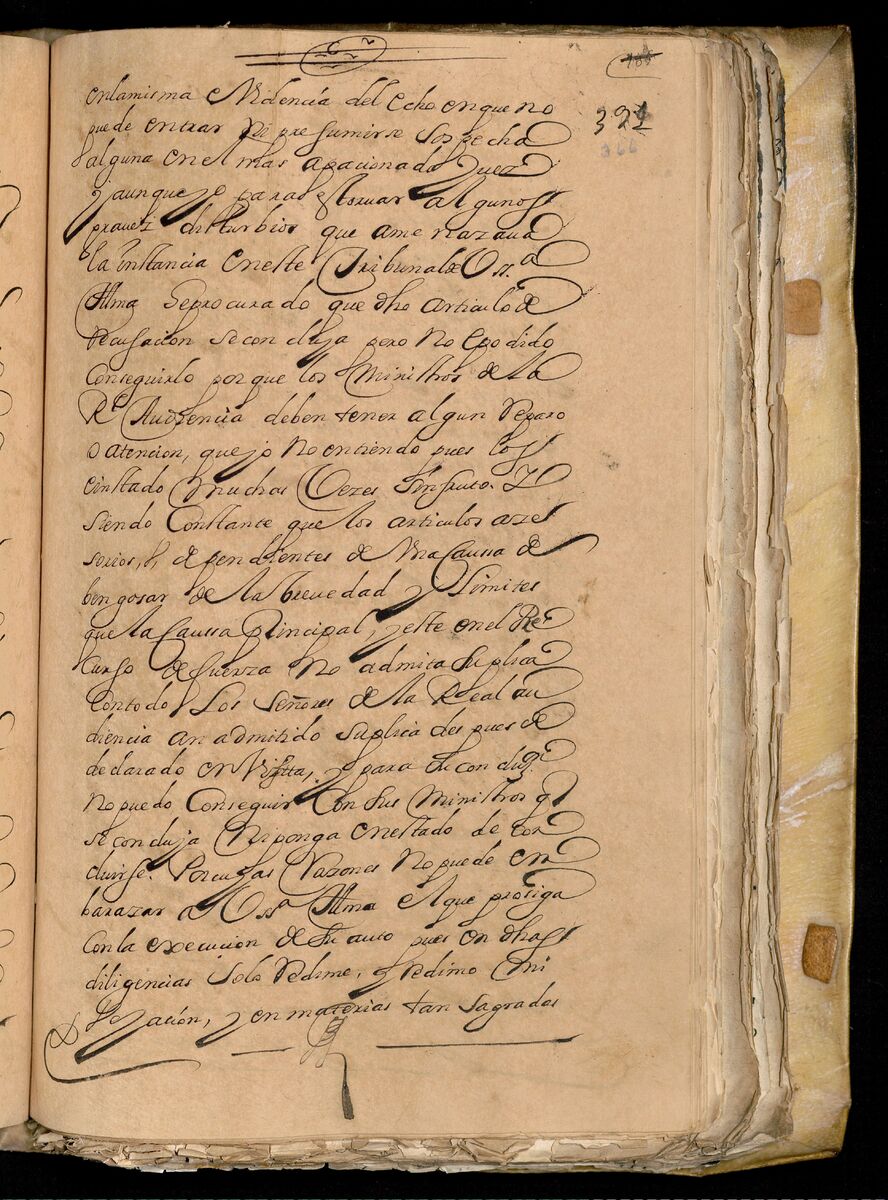 165
391
366
en la misma evidencia del echo en que no
puede entrar ni presumirse sospecha
alguna en el mas apacionado Juez
y aunque yo para estoruar algunos
disturbios que amenazaua
la instancia en este Tribunal de Vss.a
Illma se procurado que dho articulo de
recusacion se concluja pero no e podido
Conseguirlo por que los Ministros de la
Rl Audiencia deben tener algun reparo
o atencion, que yo no entiendo pues los
e instado muchas Vezes sin fruto. Y
siendo Constante que los articulos azes
sorios, y dependientes de Vna Caussa de
ben gosar de la breuedad y Limites
que la Caussa Principal, y este en el Re
Curso de fuerza no admita suplica
Con todo los Señores de la Real au
diencia an admitido suplica despues de
declarado en Vista, y para su conduz.n
no puedo Conseguir Con sus Ministros q
se conduja ni ponga en estado de con
duirse. Por cuyas razones no puede em
barazar a Vss.a Illma el que prosiga
Con la execucion de su auto pues en dhas
diligencias solo redime, y redimo mi
Vejación, y en materias tan sagradas